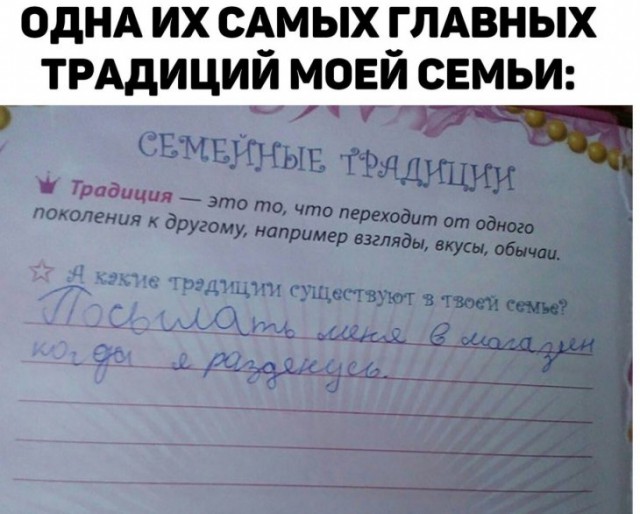 ОДНА ИХ САМЫХ ГЛАВНЫХ
ТРАДИЦИЙ МОЕЙ СЕМЬИ:
СЕМЕЙНЫЕ ТРАДИЦИИ
Традиция — это то, что переходит от одного
поколения к другому, например взгляды, вкусы, обычаи.
А какие традиции существуют в твоей семье?
Посылать меня в магазин
когды я разденусь.